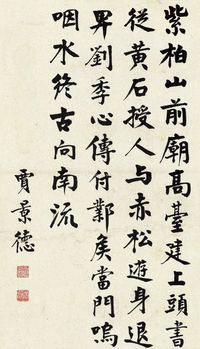 紫柏山前廟高臺建上頭書
從黃石授人与赤松遊身退
劉季心傳付酇矦當門嗚
咽水終古向南流
賈景德